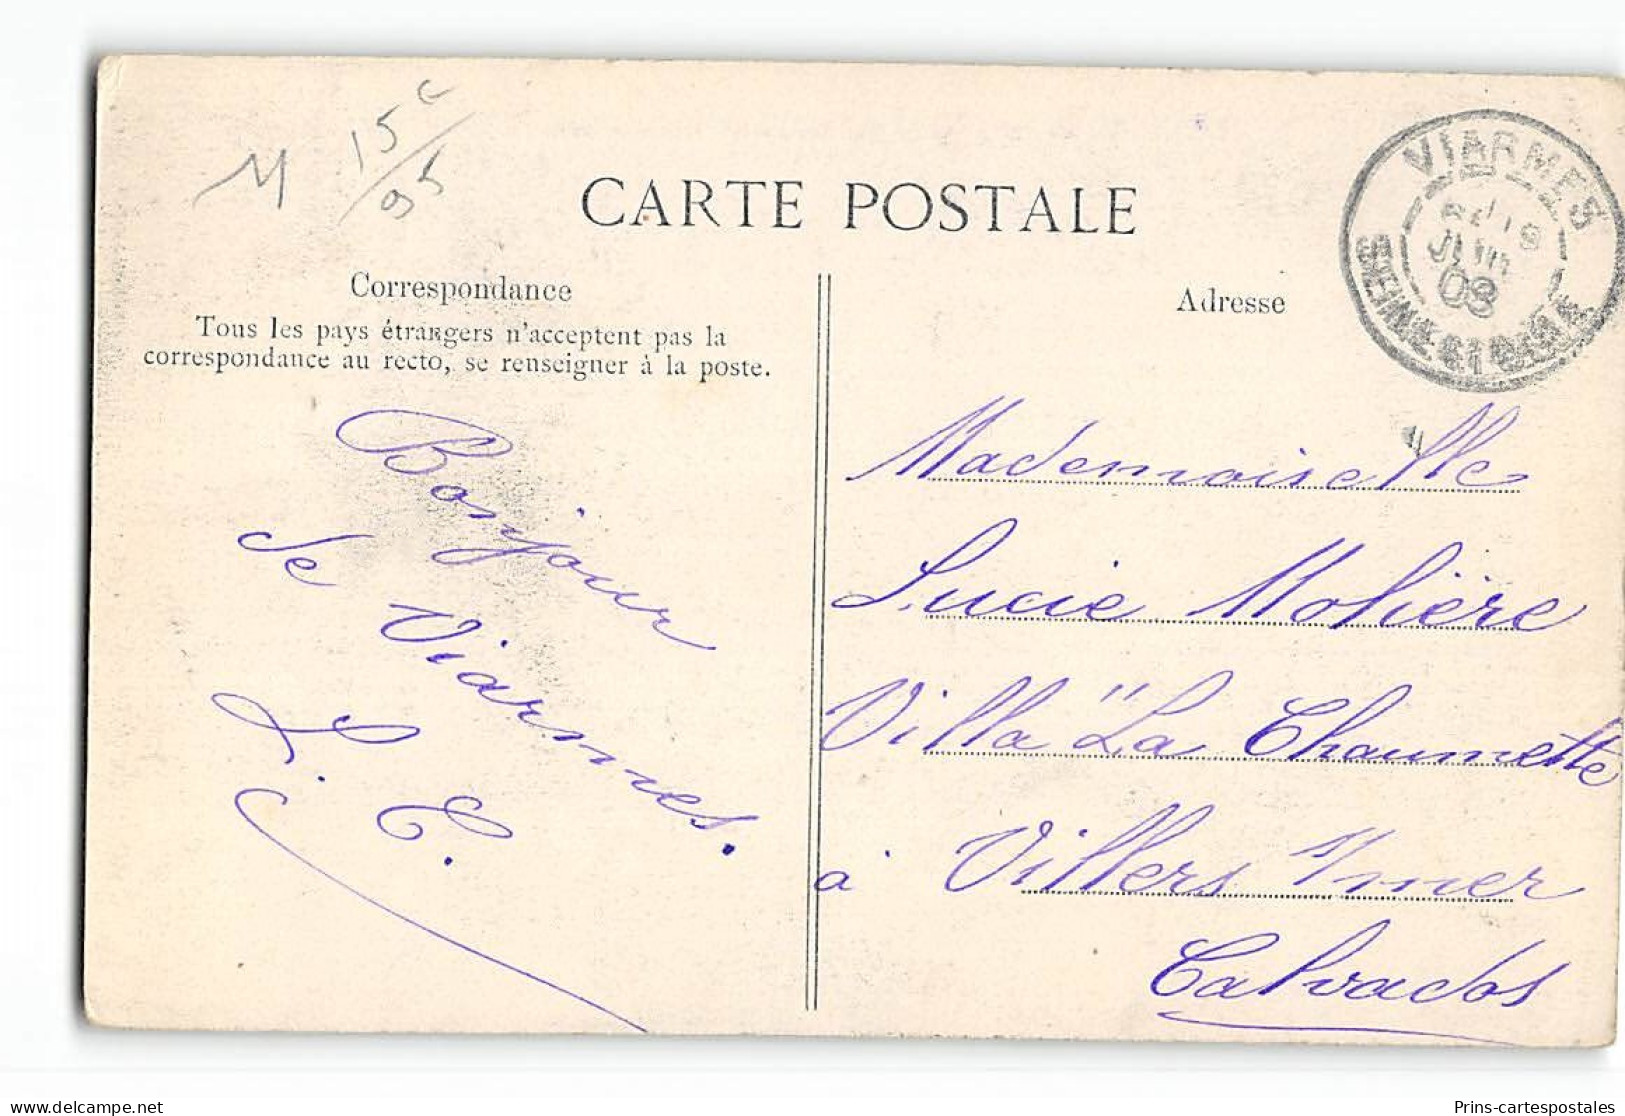 M 15c/95
CARTE POSTALE
VIARMES
JUIL
08
SEINE-ET-OISE
Correspondance
Tous les pays étrangers n'acceptent pas la
correspondance au recto, se renseigner à la poste.
Adresse
Bonjour
de Viarmes.
L. C.
Mademoiselle
Lucie Molière
Villa "La Chaumette
à Villers s/mer
Calvados
delcampe.net
Prins-cartespostales